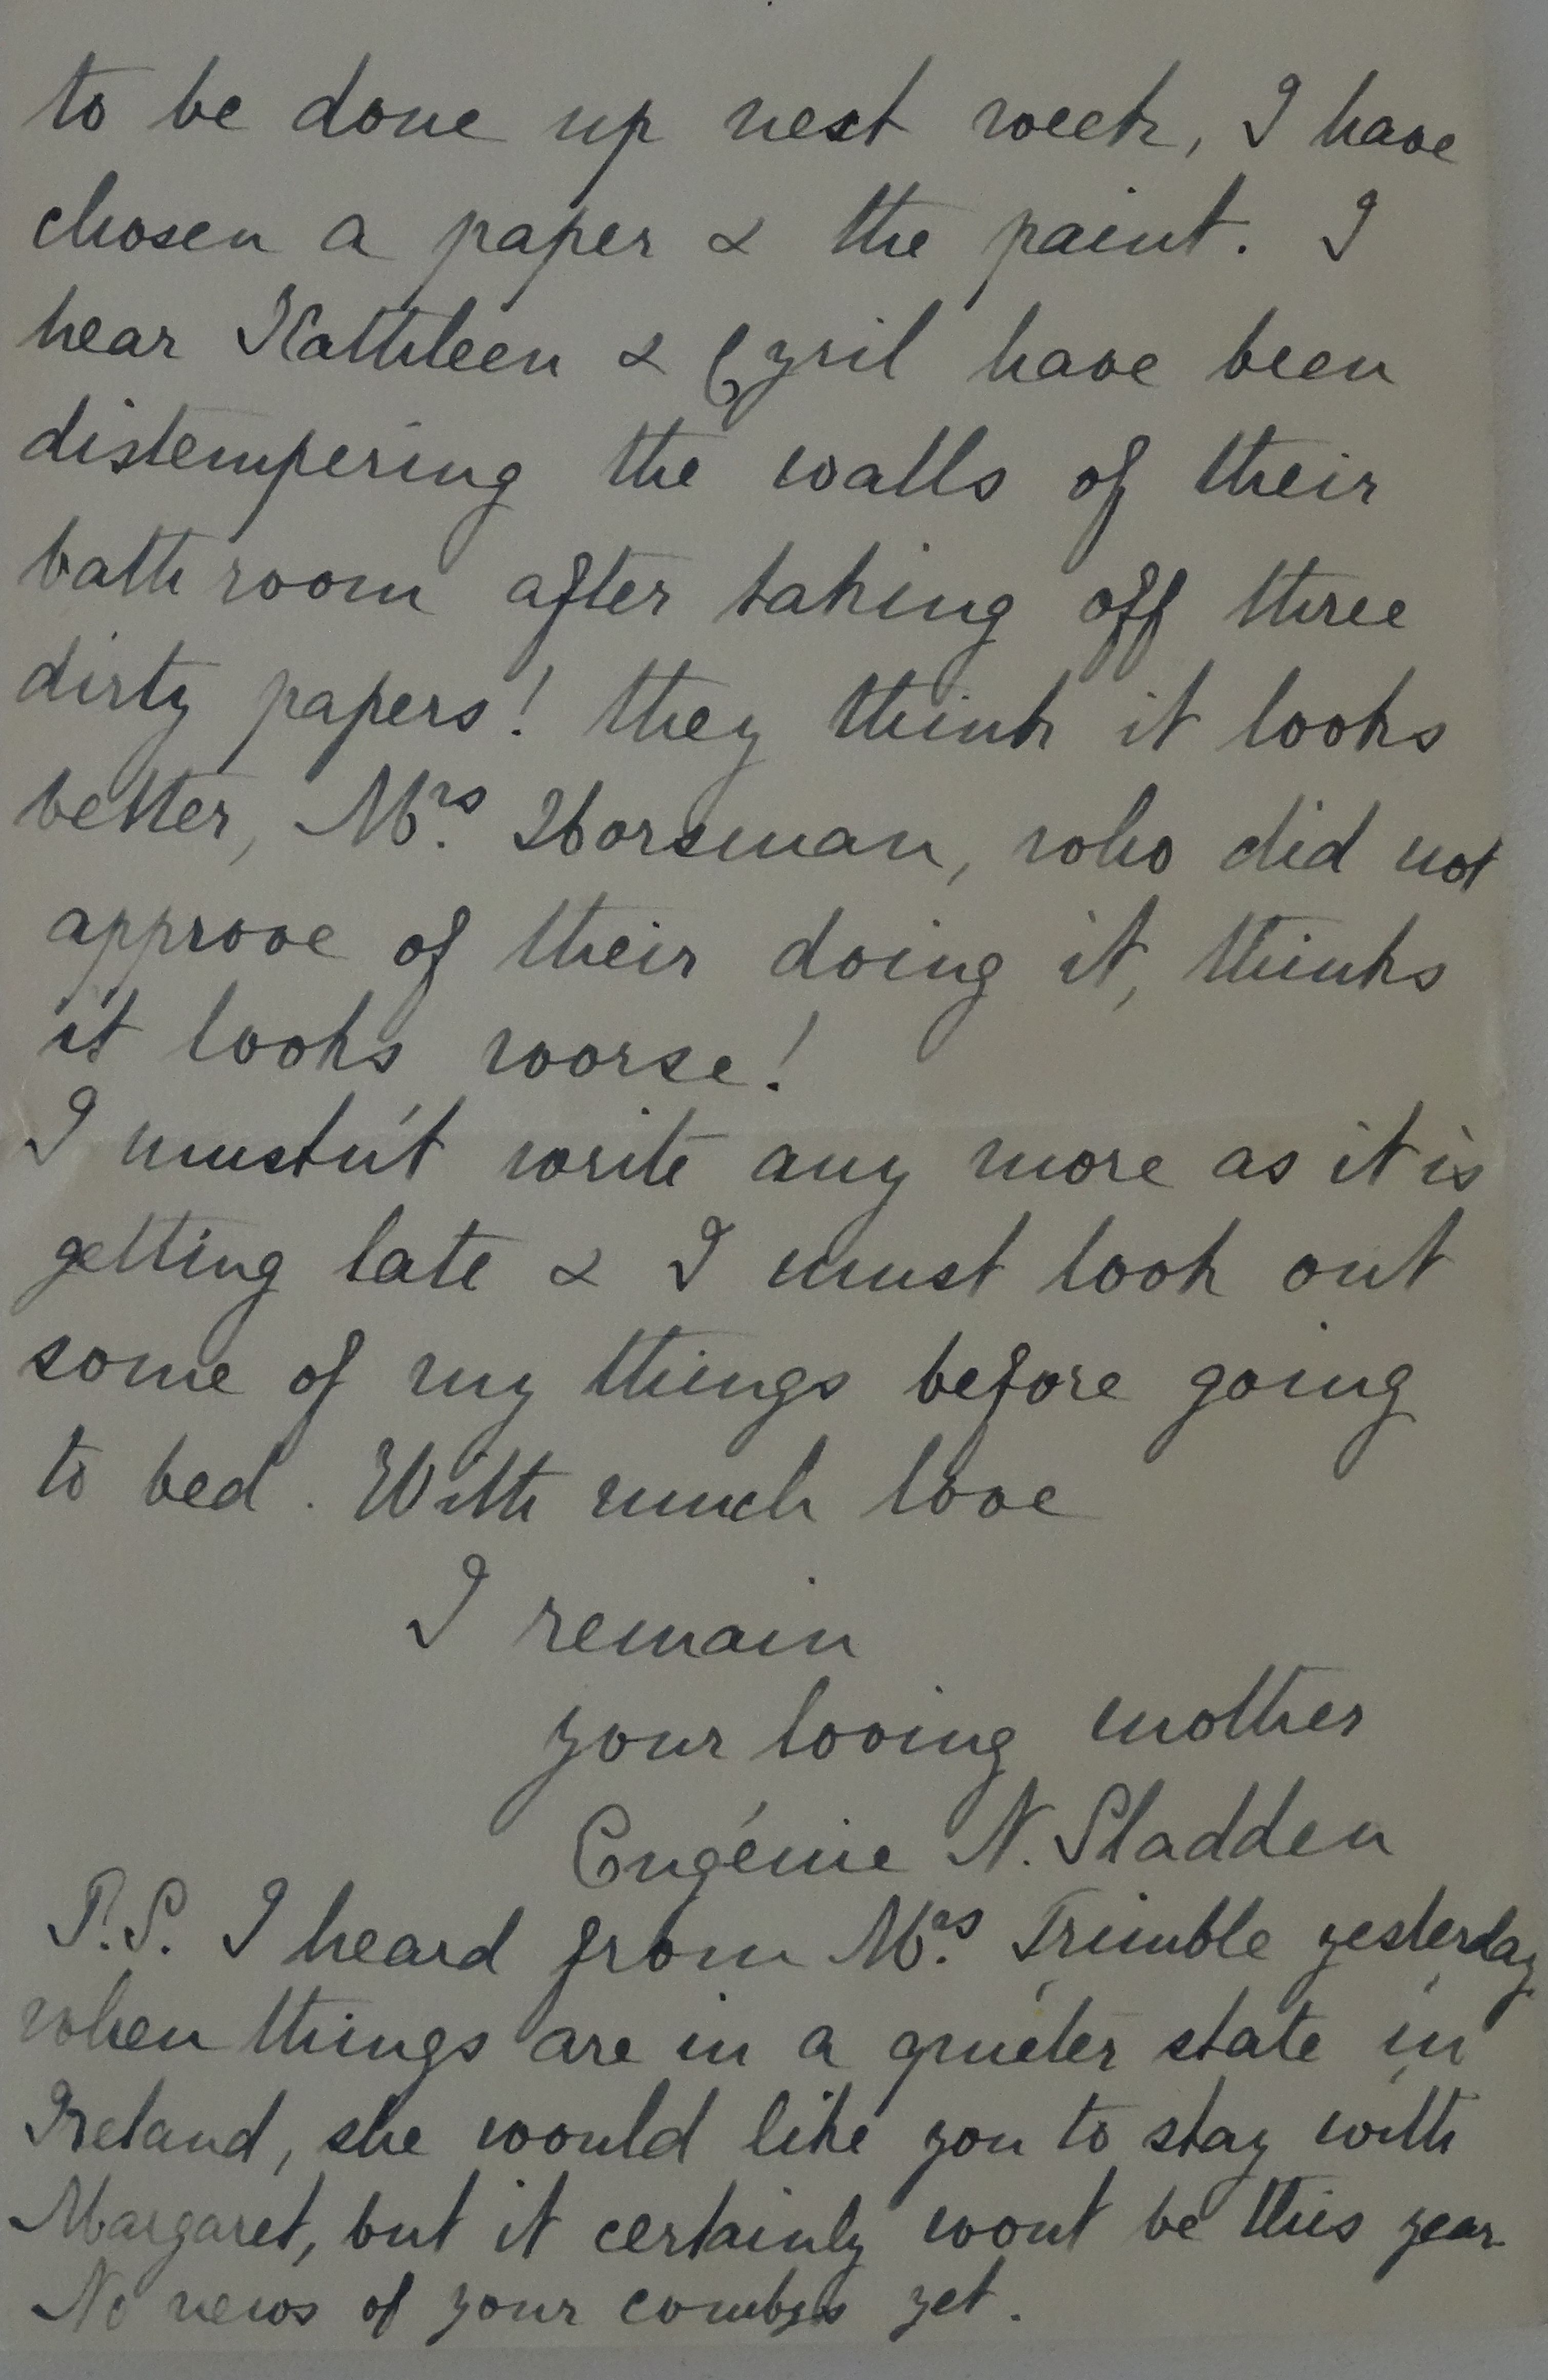 to be done up next week, I have
chosen a paper & the paint. I
hear Kathleen & Cyril have been
distempering the walls of their
bath room after taking off three
dirty papers! they think it looks
better, Mrs. Horsman, who did not
approve of their doing it, thinks
it looks worse!
I mustn't write any more as it is
getting late & I must look out
some of my things before going
to bed. With much love
I remain
your loving mother
Eugénie N. Sladden
P.S. I heard from Mrs. Trimble yesterday
when things are in a quieter state in
Ireland, she would like you to stay with
Margaret, but it certainly wont be this year.
No news of your combs yet.